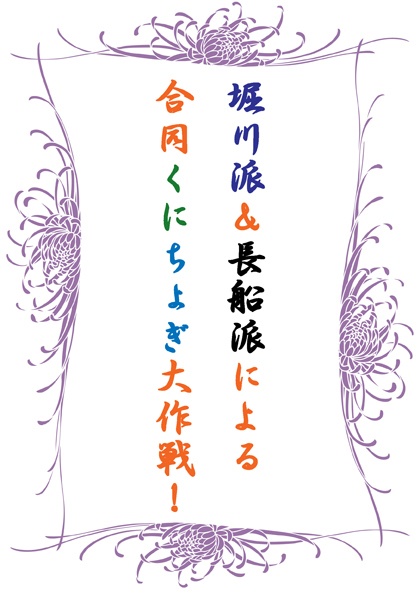 堀川派&長船派による
合同くにちょぎ大作戦!